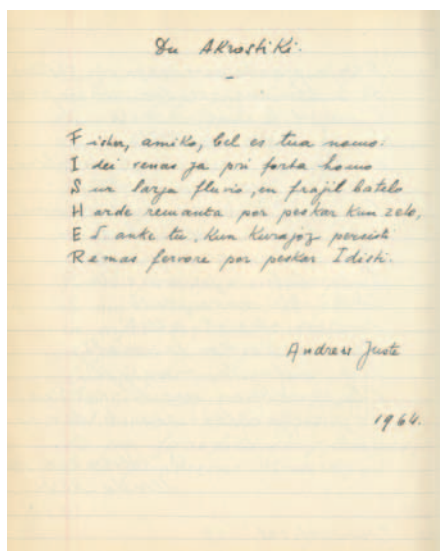 Du Akrostiki.
Fisher, amiko, bel es tua nomo:
Idei venas ja pri forta homo
Sur larja fluvio, en frajil batelo
Harde remanta por peskar kun zelo,
Ed anke tu, kun kurajoz persisti
Remas fervore por peskar Idisti.
Andreas Juste
1964.